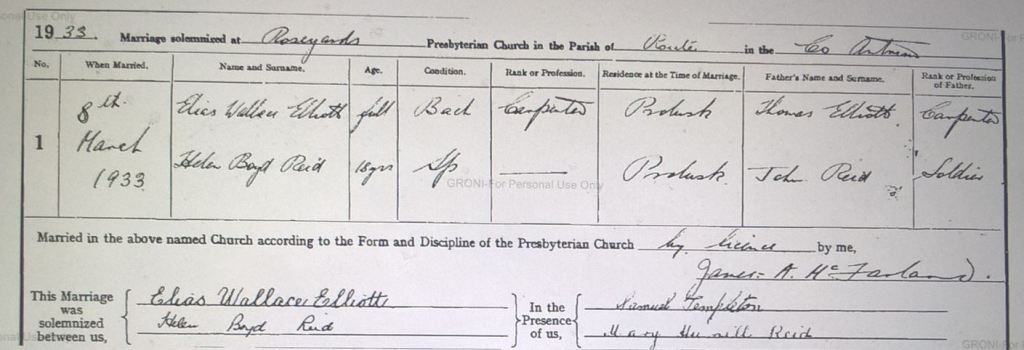 1933. Marriage solemnized at Roseyards Presbyterian Church in the Parish of Route in the Co Antrim
No. When Married. Name and Surname. Age. Condition. Rank or Profession. Residence at the Time of Marriage. Father's Name and Surname. Rank or Profession of Father.
1 8th March 1933
Elias Wallace Elliott full Bach Carpenter Prolusk Thomas Elliott. Carpenter
Helen Boyd Reid 18yrs Sp Prolusk. John Reid Soldier
GRONI-For Personal Use Only
Married in the above named Church according to the Form and Discipline of the Presbyterian Church by licence by me,
James A. McFarland.
This Marriage was solemnized between us, Elias Wallace Elliott In the Presence of us, Samuel Templeton
Helen Boyd Reid Mary Reid